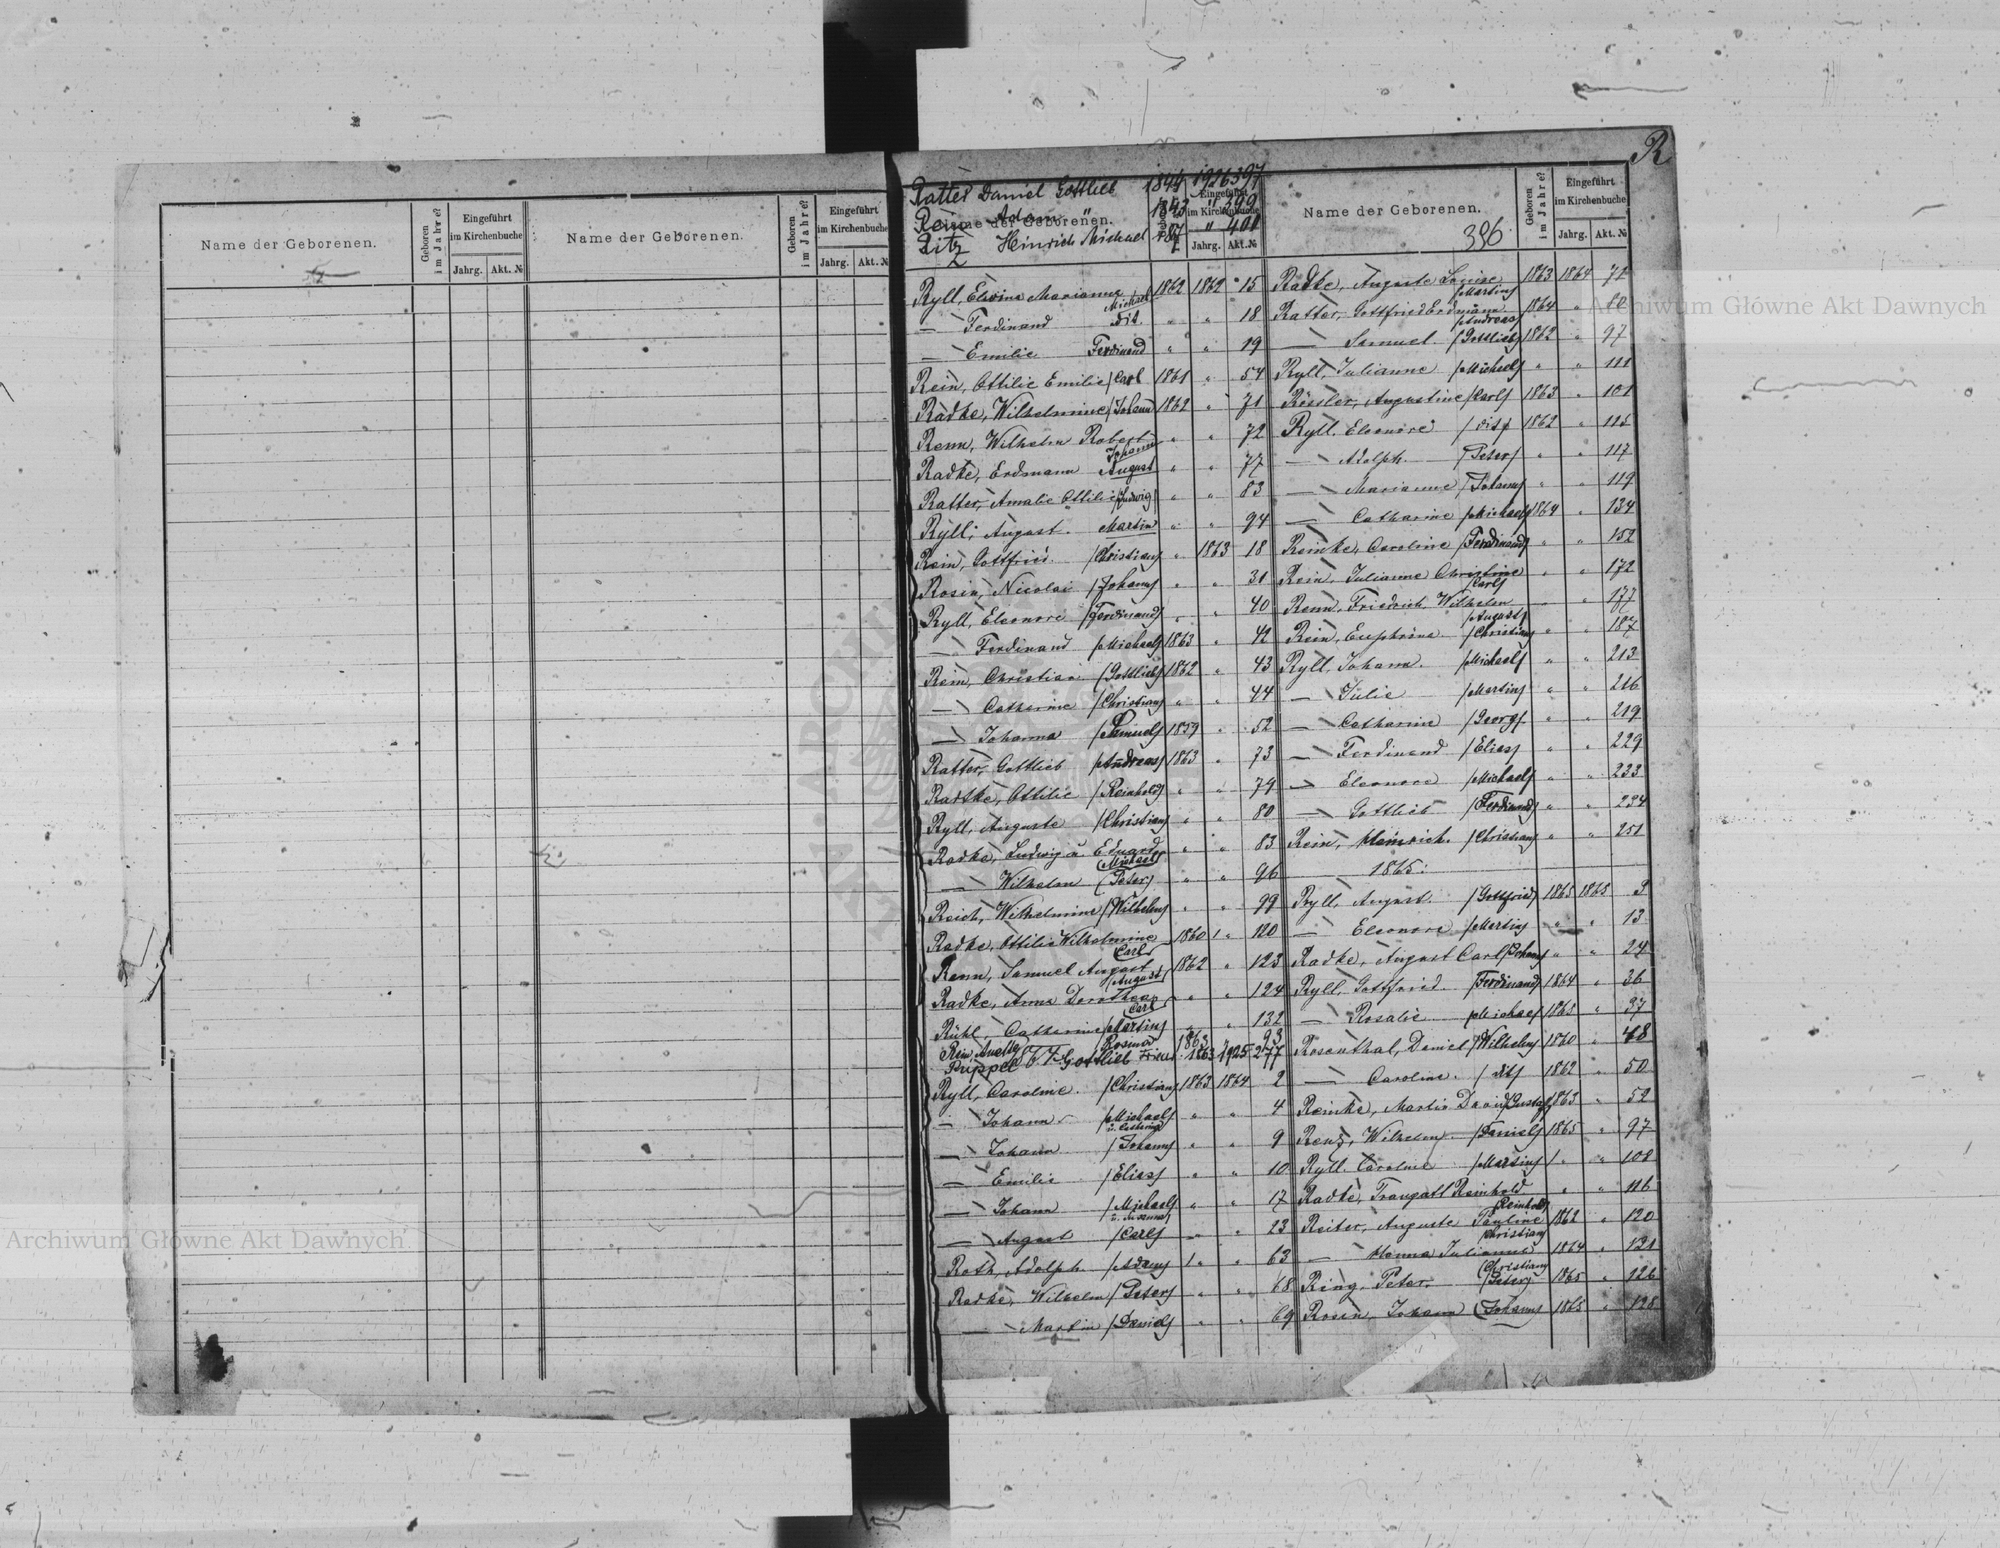 R
Name der Geborenen.
Geboren im Jahre?
Eingeführt im Kirchenbuche
Jahrg. Akt. №
Name der Geborenen.
Geboren im Jahre?
Eingeführt im Kirchenbuche
Jahrg. Akt. №
Ratter Daniel Gottlieb 1844 1926 397
Rein Adam " 1843 " 399
Ritz Heinrich Michael " 401
Name der Geborenen.
Eingeführt im Kirchenbuche
Jahrg. Akt. №
Ryll, Elwine Marianne Michael 1862 1862 15
— Ferdinand dit. " " 18
— Emilie Ferdinand " " 19
Rein, Ottilie Emilie /Carl 1861 " 54
Radke, Wilhelmine /Johann 1862 " 71
Renn, Wilhelm Robert Johann " " 72
Radke, Erdmann August " " 77
Ratter, Amalie Ottilie /Ludwig/ " " 83
Ryll, August. Martin " " 94
Rein, Gottfried. /Christian/ " 1863 18
Rosin, Nicolai /Johann/ " " 31
Ryll, Eleonore /Ferdinand/ " " 40
— Ferdinand /Michael/ 1863 " 42
Rein, Christian /Gottlieb/ 1862 " 43
— Catharine /Christian/ " " 44
— Johanna /Samuel/ 1859 " 52
Ratter, Gottlieb /Andreas/ 1863 " 73
Radtke, Ottilie /Reinhold/ " " 79
Ryll, Auguste /Christian/ " " 80
Radke, Ludwig u Eduard /Michael/ " " 83
— Wilhelm /Peter/ " " 96
Reich, Wilhelmine /Wilhelm/ " " 99
Radke, Ottilie Wilhelmine Carl 1860 " 120
Renn, Samuel August /August/ 1862 " 123
Radke, Anna Dorothea Carl " " 124
Rühl, Catharine /Martin/ " " 132
Rein, Rosina 1863 " 93
Ruppel Gottlieb 1863 1925 277
Ryll, Caroline. /Christian/ 1863 1864 2
— Johann /Michael/ " " 4
— Johann /Johann/ " " 9
— Emilie /Elias/ " " 10
— Johann /Michael/ " " 17
— August /Carl/ " " 23
Roth, Adolph /Adam/ " " 63
Radke, Wilhelm /Peter/ " " 68
— Martin /Daniel/ " " 69
Name der Geborenen. 396.
Geboren im Jahre?
Eingeführt im Kirchenbuche
Jahrg. Akt. №
Radke, Auguste Louise /Martin/ 1863 1864 72
Ratter, Gottfried Erdmann /Andreas/ 1864 "
— Samuel /Gottlieb/ 1862 " 97
Ryll, Julianne /Michael/ " " 111
Rössler, Augustine /Carl/ 1863 " 101
Ryll, Eleonore /dit/ 1862 " 115
— Adolph. /Peter/ " " 117
— Marianne /Johann/ " " 119
— Catharine /Michael/ 1864 " 134
Reinke, Caroline /Ferdinand/ " " 152
Rein, Julianne Christine /Carl/ " " 172
Renn, Friedrich Wilhelm /August/ " 177
Rein, Euphrine /Christian/ " " 187
Ryll, Johann. /Michael/ " " 213
— Julie /Martin/ " " 216
— Catharine /Georg/ " " 219
— Ferdinand /Elias/ " " 229
— Eleonore /Michael/ " " 233
— Gottlieb /Ferdinand/ " " 234
Rein, Heinrich. /Christian/ " " 251
1865:
Ryll, August. /Gottfried/ 1865 1865 3
— Eleonore /Martin/ " " 13
Radke, August Carl /Johann/ " " 24
Ryll, Gottfried. /Ferdinand/ 1864 " 36
— Rosalie /Michael/ 1865 " 37
Rosenthal, Daniel /Wilhelm/ 1860 " 48
— Caroline. /dit/ 1862 " 50
Reinke, Martin David /Gustaf/ 1863 " 52
Renz, Wilhelm /Daniel/ 1865 " 97
Ryll, Caroline /Martin/ " " 108
Radke, Traugott Reinhold /Reinhold/ " " 116
Reiter, Auguste Pauline /Christian/ 1862 " 120
— Hanna Julianne /Christian/ 1864 " 121
Ring, Peter. /Peter/ 1865 " 126
Rosin, Johann /Johann/ 1865 " 128
Archiwum Główne Akt Dawnych
Archiwum Główne Akt Dawnych